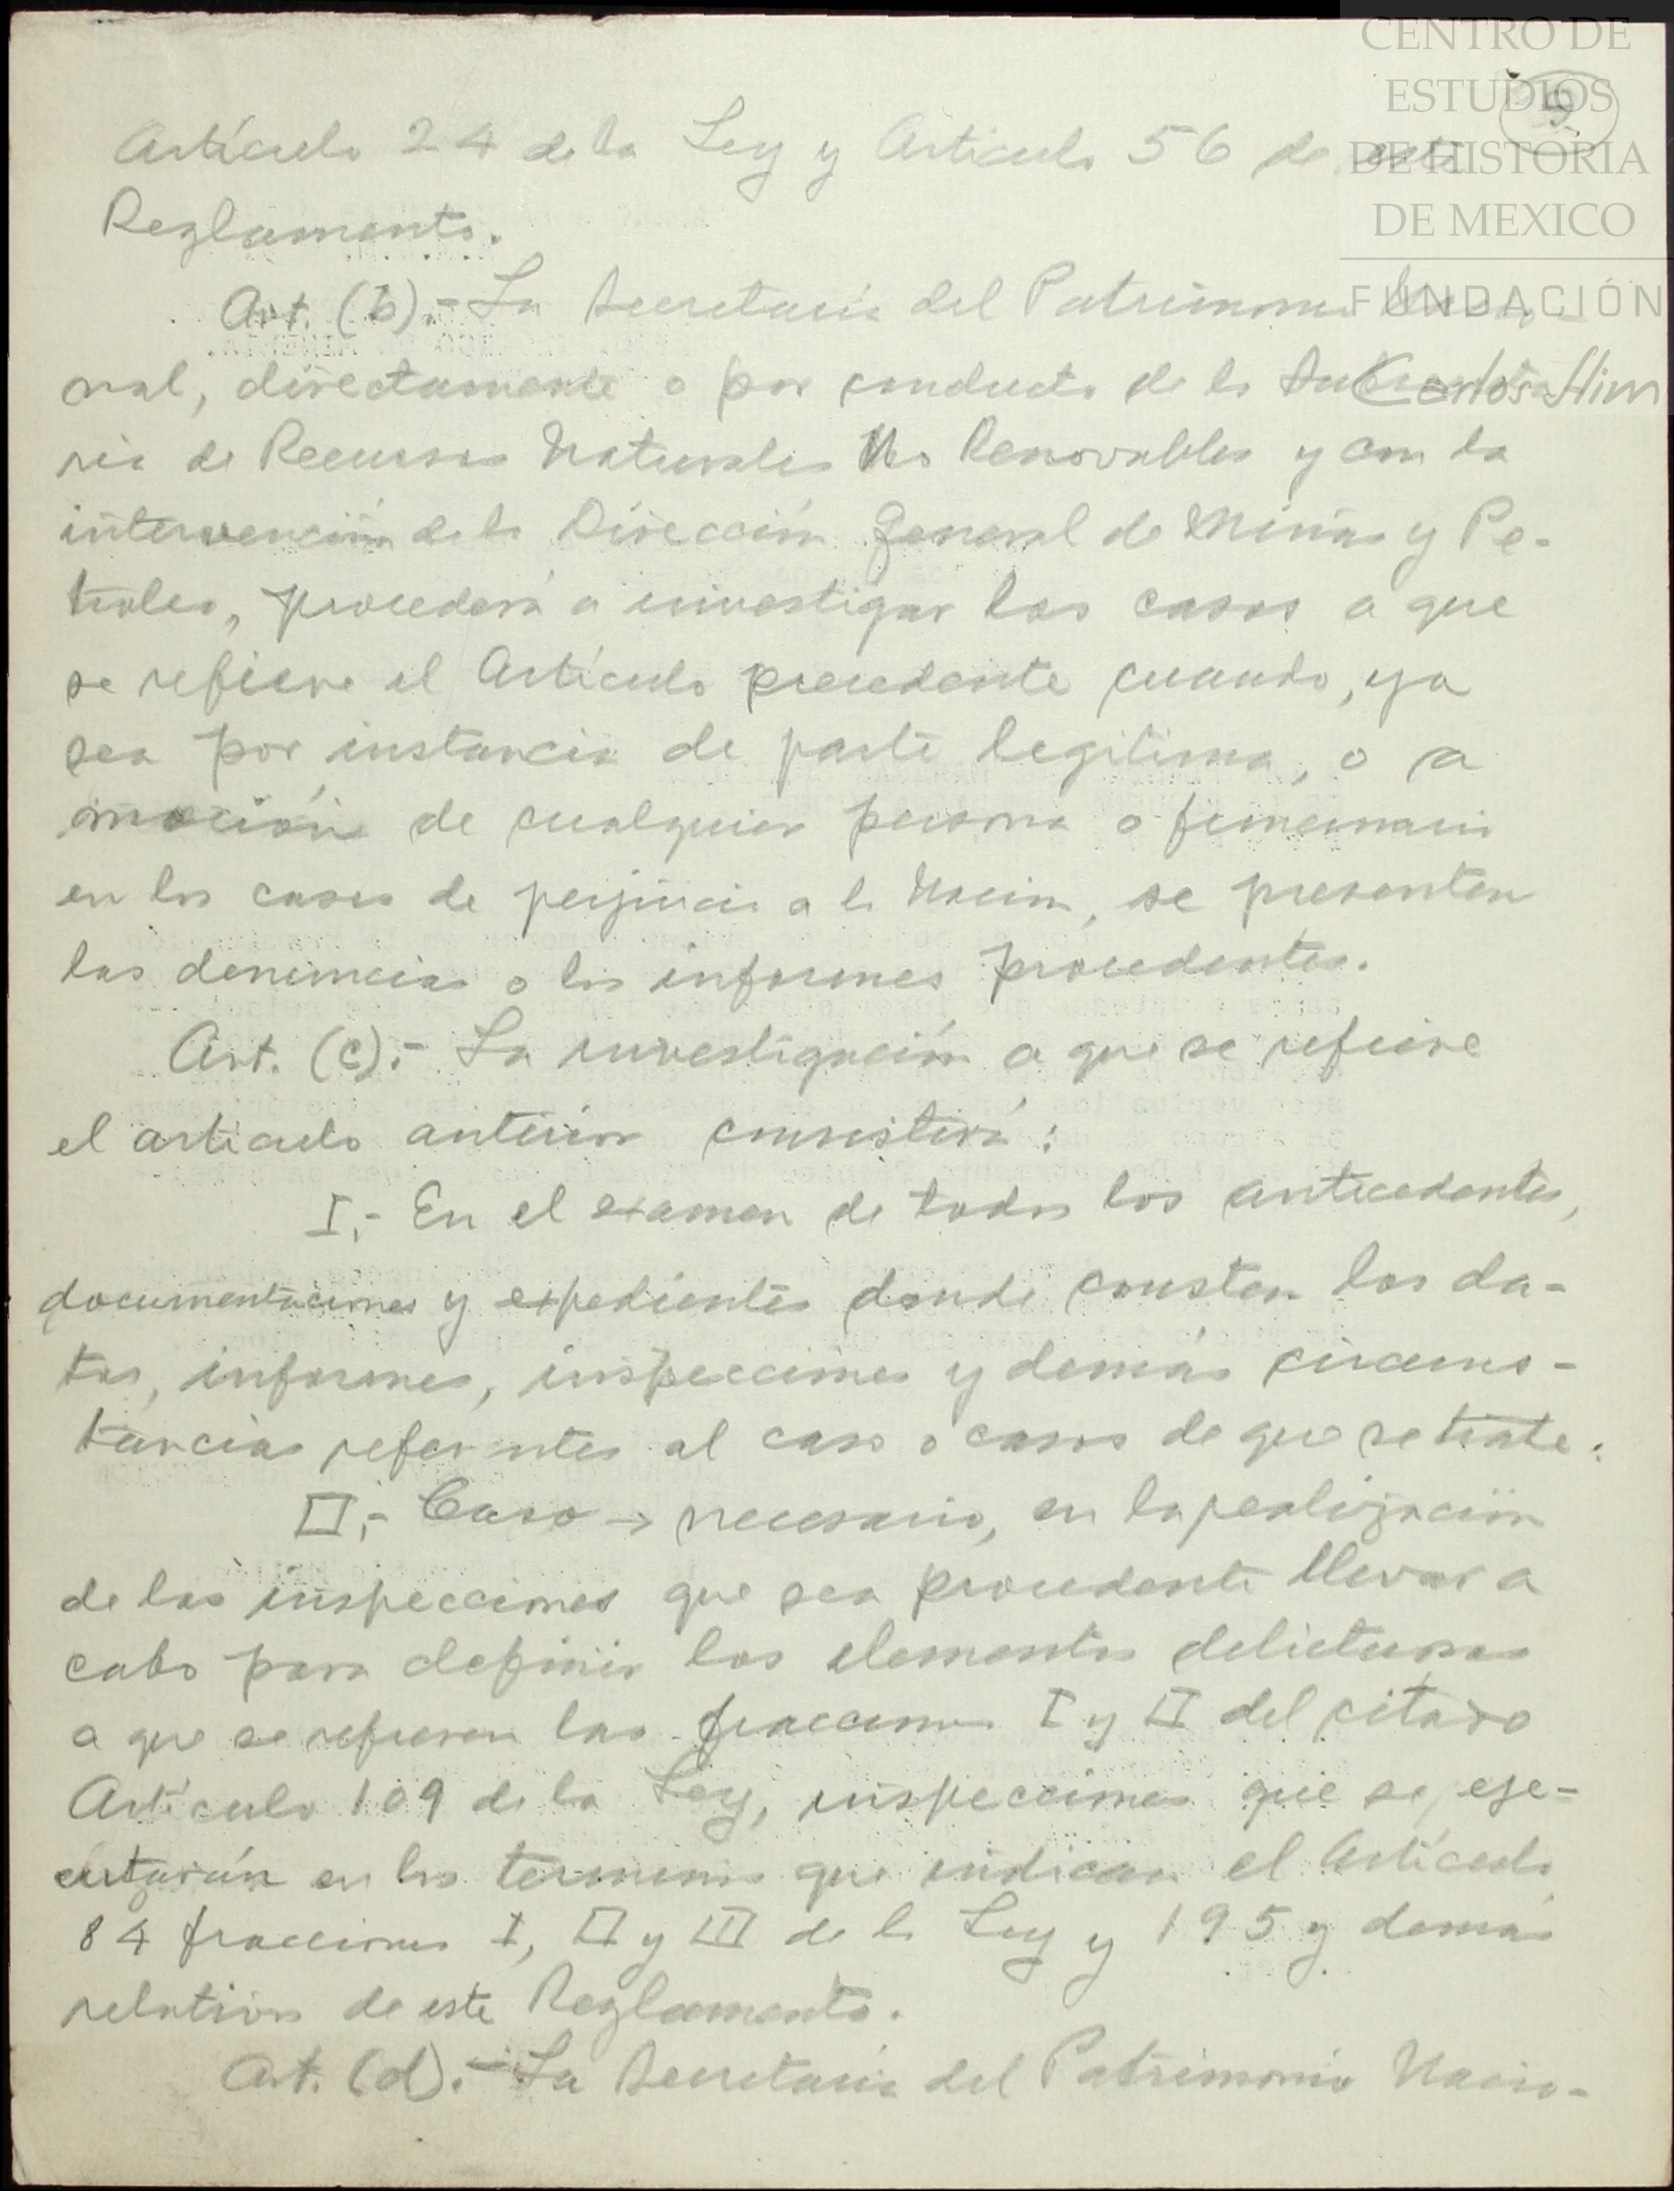 CENTRO DE
ESTUDIOS
DE HISTORIA
DE MEXICO
FUNDACIÓN
Carlos Slim
9
Artículo 24 de la Ley y Artículo 56 de este
Reglamento.
Art. (b).- La Secretaría del Patrimonio Nacio-
nal, directamente o por conducto de la Subsecreta-
ría de Recursos Naturales No Renovables y con la
intervención de la Dirección General de Minas y Pe-
tróleo, procederá a investigar los casos a que
se refiere el Artículo precedente cuando, ya
sea por instancia de parte legítima, o a
moción de cualquier persona o funcionario
en los casos de perjuicio a la Nación, se presenten
las denuncias o los informes procedentes.
Art. (c).- La investigación a que se refiere
el artículo anterior consistirá:
I.- En el examen de todos los antecedentes,
documentaciones y expedientes donde constan los da-
tos, informes, inspecciones y demás circuns-
tancias referentes al caso o casos de que se trate.
II.- Caso → necesario, en la realización
de las inspecciones que sea procedente llevar a
cabo para definir los elementos delictuosos
a que se refieren las fracciones I y II del citado
Artículo 109 de la Ley, inspecciones que se eje-
cutarán en los términos que indican el Artículo
84 fracciones I, II y III de la Ley y 195 y demás
relativos de este Reglamento.
Art. (d).- La Secretaría del Patrimonio Nacio-